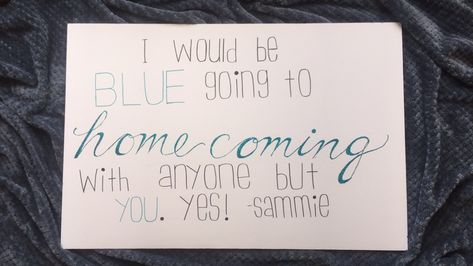 I would be
BLUE going to
homecoming
with anyone but
you. yes! -sammie